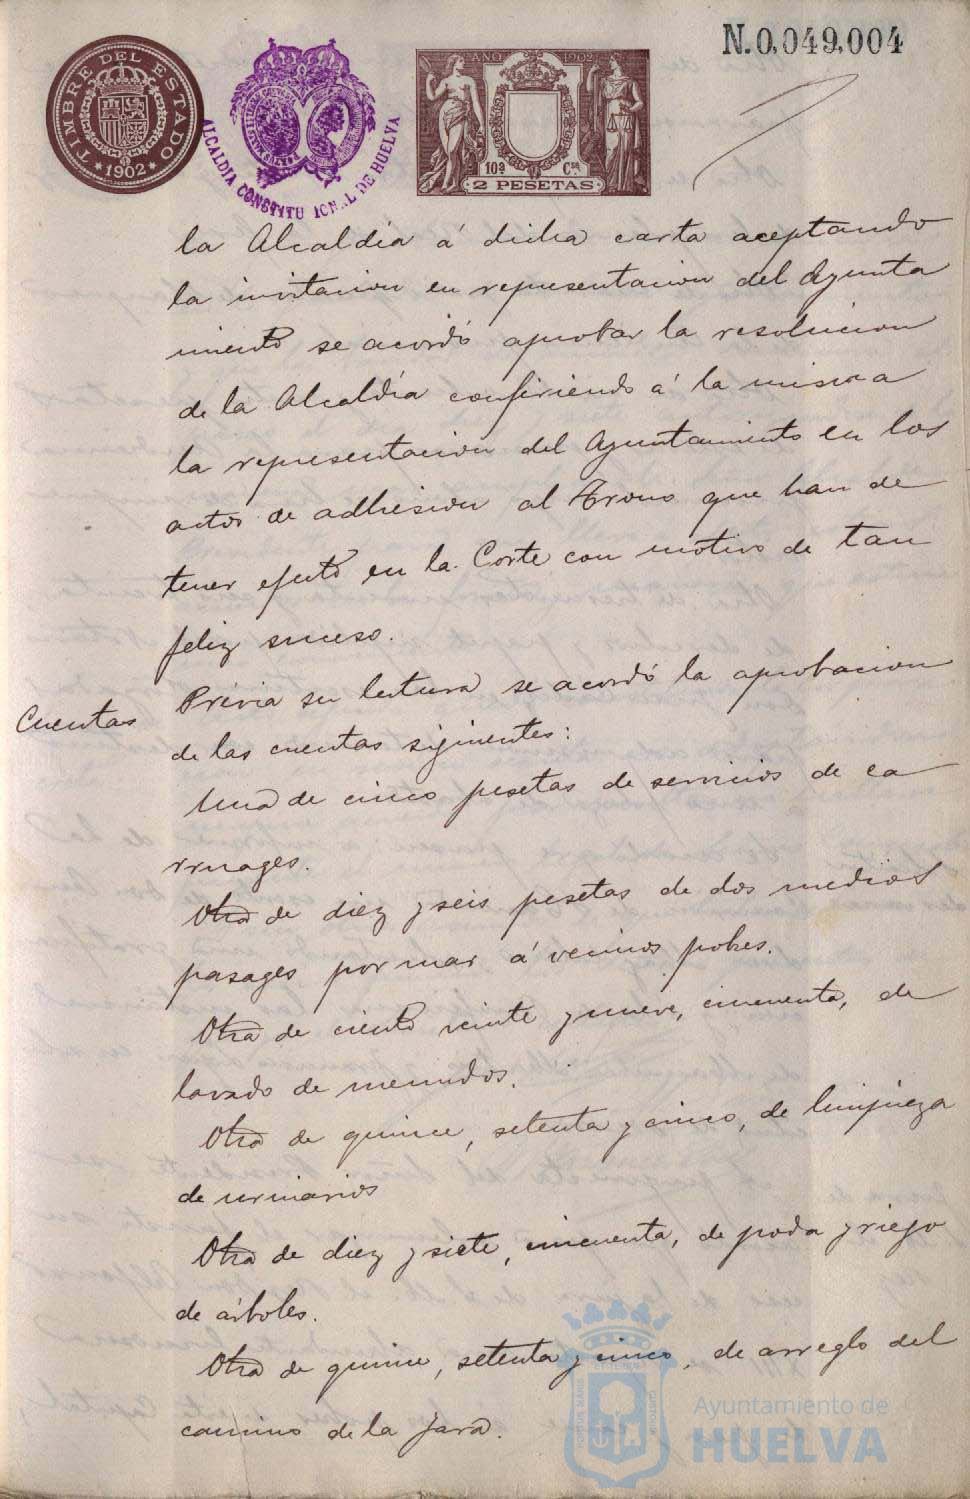 N.0,049,004
TIMBRE DEL ESTADO
*1902*
ALCALDIA CONSTITUCIONAL DE HUELVA
AÑO 1902
10ª Cˢᵉ
2 PESETAS
la Alcaldia á dicha carta aceptando
la invitacion en representacion del Ayunta
miento se acordó aprobar la resolucion
de la Alcaldía confiriendo á la misma
la representacion del Ayuntamiento en los
actos de adhesion al Trono que han de
tener efecto en la Corte con motivo de tan
feliz suceso.
Cuentas
Prévia su lectura se acordó la aprobacion
de las cuentas siguientes:
Una de cinco pesetas de servicios de ca
rruages.
Otra de diez y seis pesetas de dos medios
pasages por mar á vecinos pobres.
Otra de ciento veinte y nueve, cincuenta, de
lavado de menudos.
Otra de quince, setenta y cinco, de limpieza
de urinarios
Otra de diez y siete, cincuenta, de poda y riego
de árboles.
Otra de quince, setenta y cinco, de arreglo del
camino de la Jara.
Ayuntamiento de
HUELVA